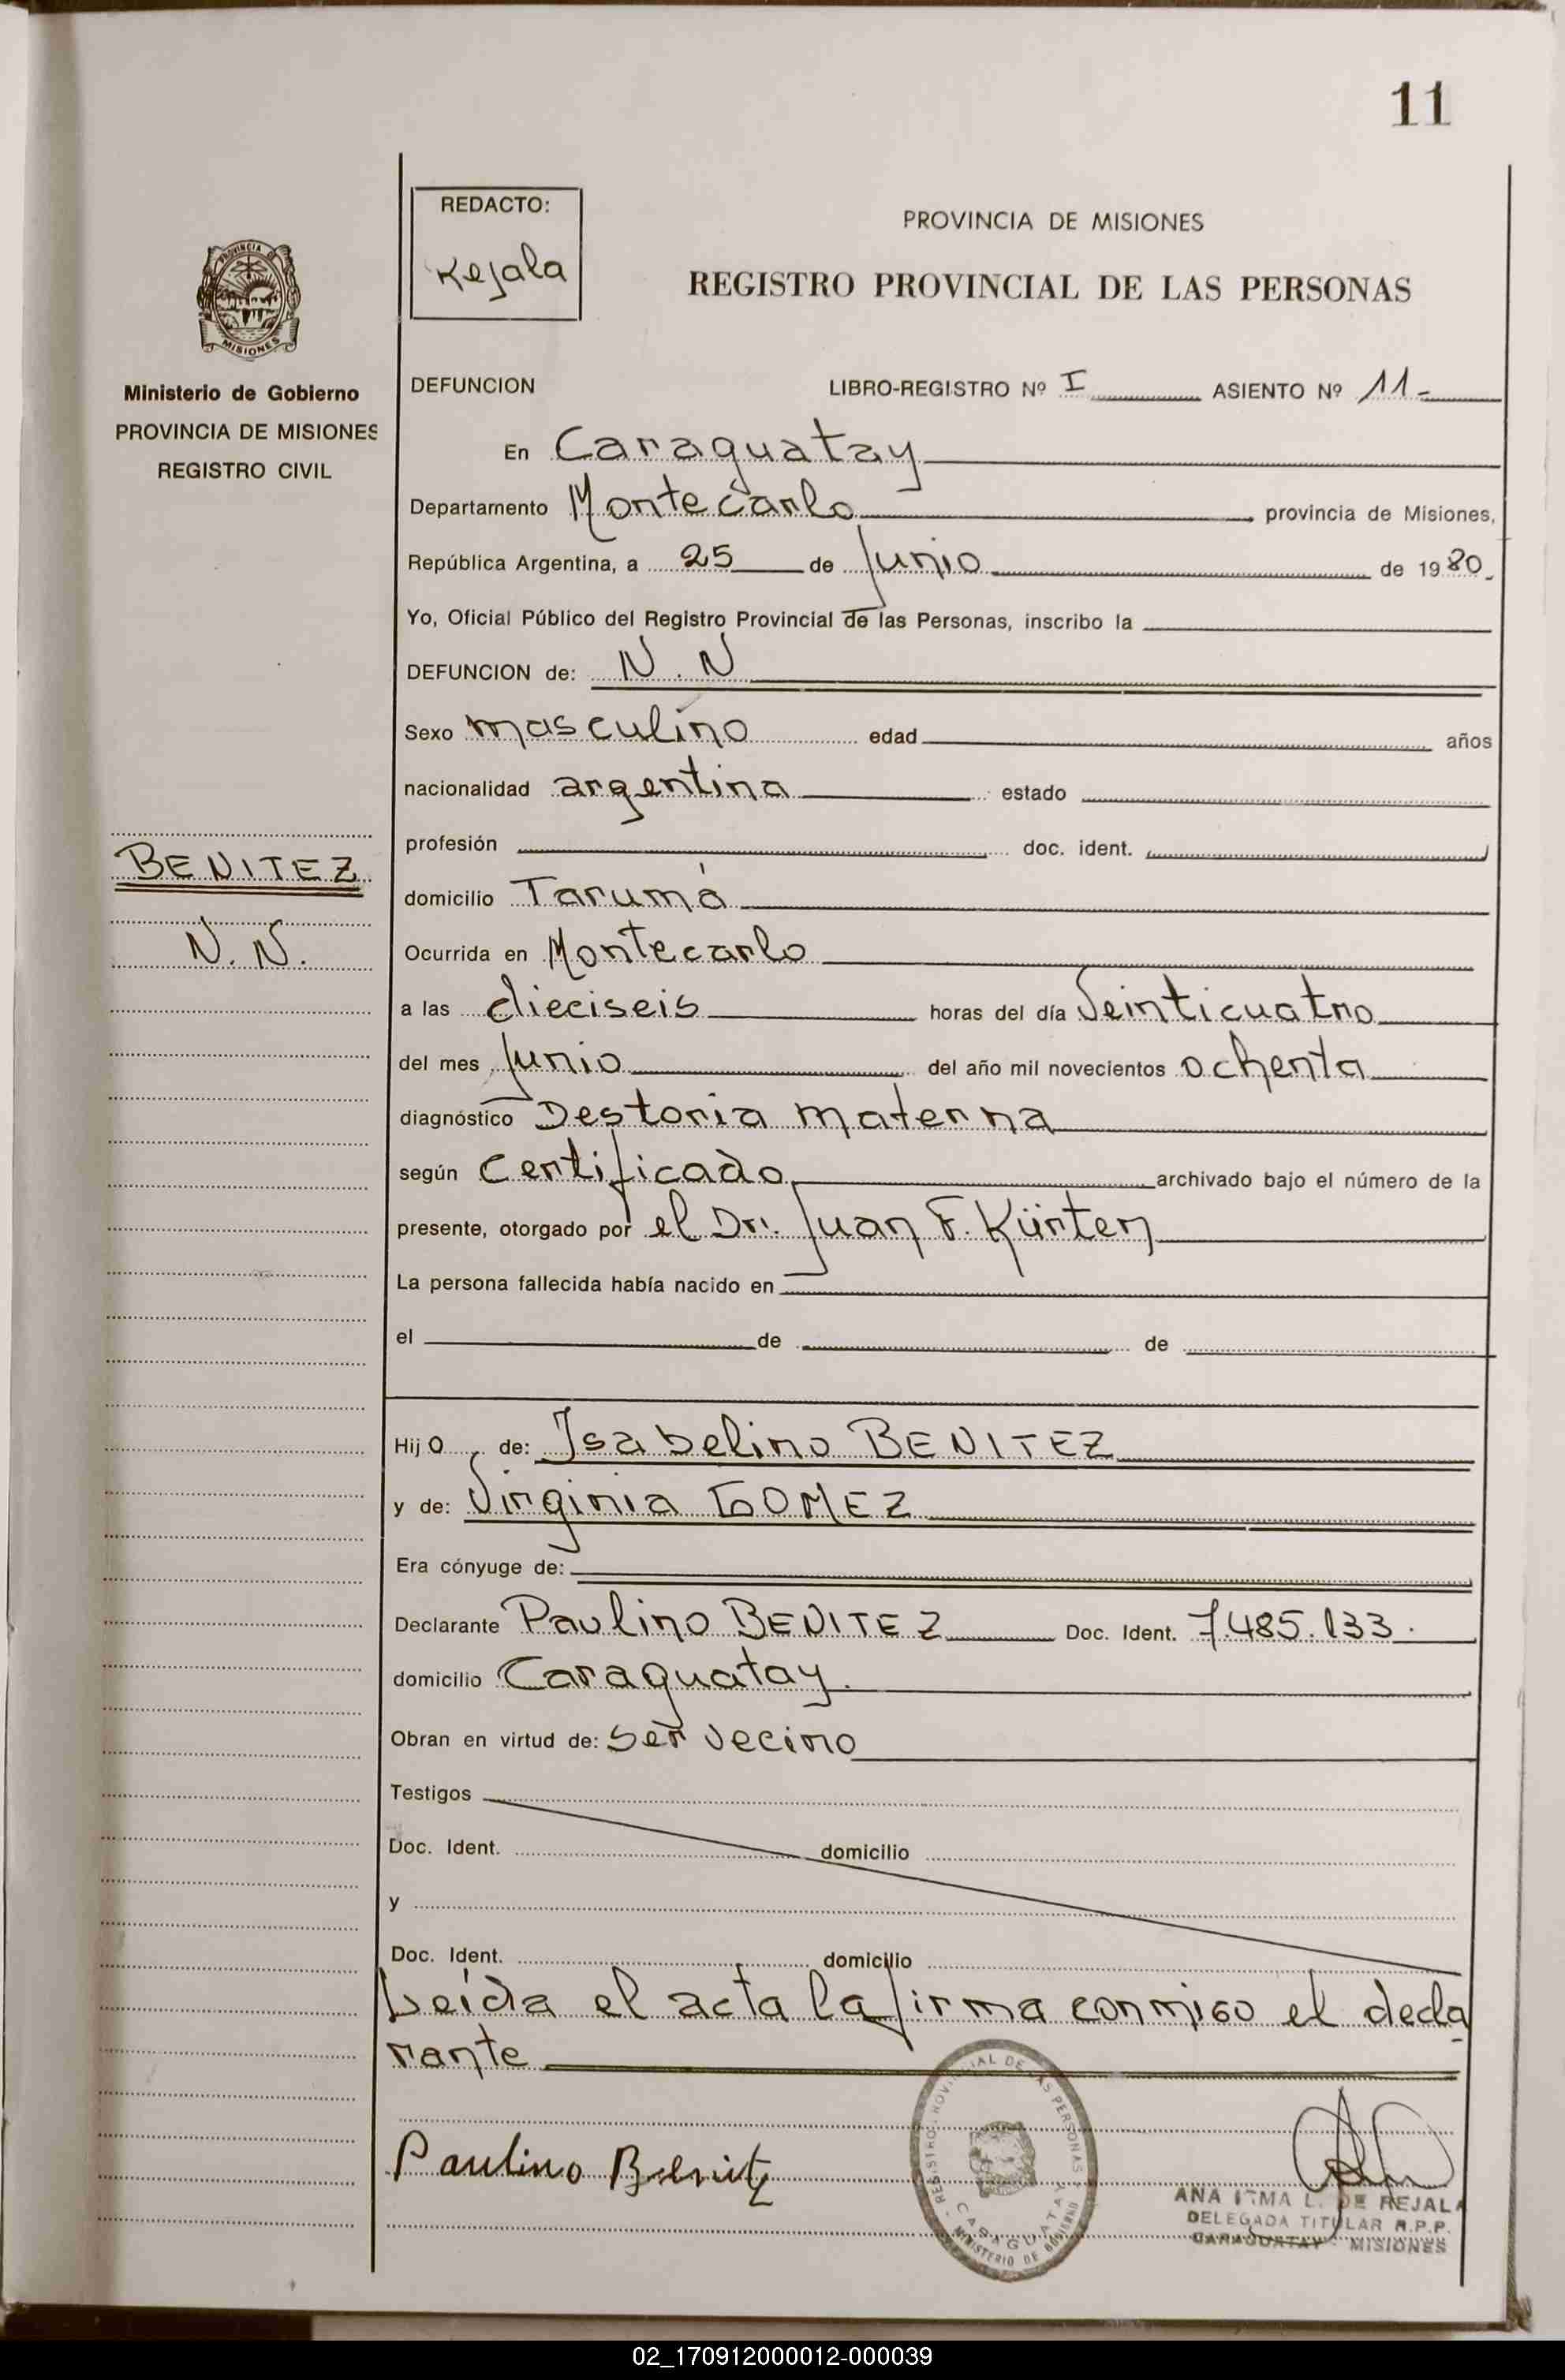 11
REDACTO:
Rejala
PROVINCIA DE MISIONES
REGISTRO PROVINCIAL DE LAS PERSONAS
PROVINCIA DE
MISIONES
Ministerio de Gobierno
PROVINCIA DE MISIONES
REGISTRO CIVIL
DEFUNCION LIBRO-REGISTRO Nº I ASIENTO Nº 11-
En Caraguatay
Departamento Montecarlo provincia de Misiones,
República Argentina, a 25 de Junio de 1980
Yo, Oficial Público del Registro Provincial de las Personas, inscribo la
DEFUNCION de: N.N
Sexo masculino edad años
nacionalidad argentina estado
profesión doc. ident.
BENITEZ
N.N.
domicilio Tarumá
Ocurrida en Montecarlo
a las dieciseis horas del día Veinticuatro
del mes Junio del año mil novecientos ochenta
diagnóstico Destoria materna
según Certificado archivado bajo el número de la
presente, otorgado por el Dr. Juan F. Kürten
La persona fallecida había nacido en
el de de
Hijo de: Isabelino BENITEZ
y de: Virginia GOMEZ
Era cónyuge de:
Declarante Paulino BENITEZ Doc. Ident. 7.485.133.
domicilio Caraguatay.
Obran en virtud de: ser vecino
Testigos
Doc. Ident. domicilio
y
Doc. Ident. domicilio
Leída el acta la firma conmigo el decla
rante
Paulino Benitz
REGISTRO PROVINCIAL DE LAS PERSONAS
CARAGUATAY
MINISTERIO DE GOBIERNO
ANA IRMA L. DE REJALA
DELEGADA TITULAR R.P.P.
CARAGUATAY - MISIONES
02_170912000012-000039